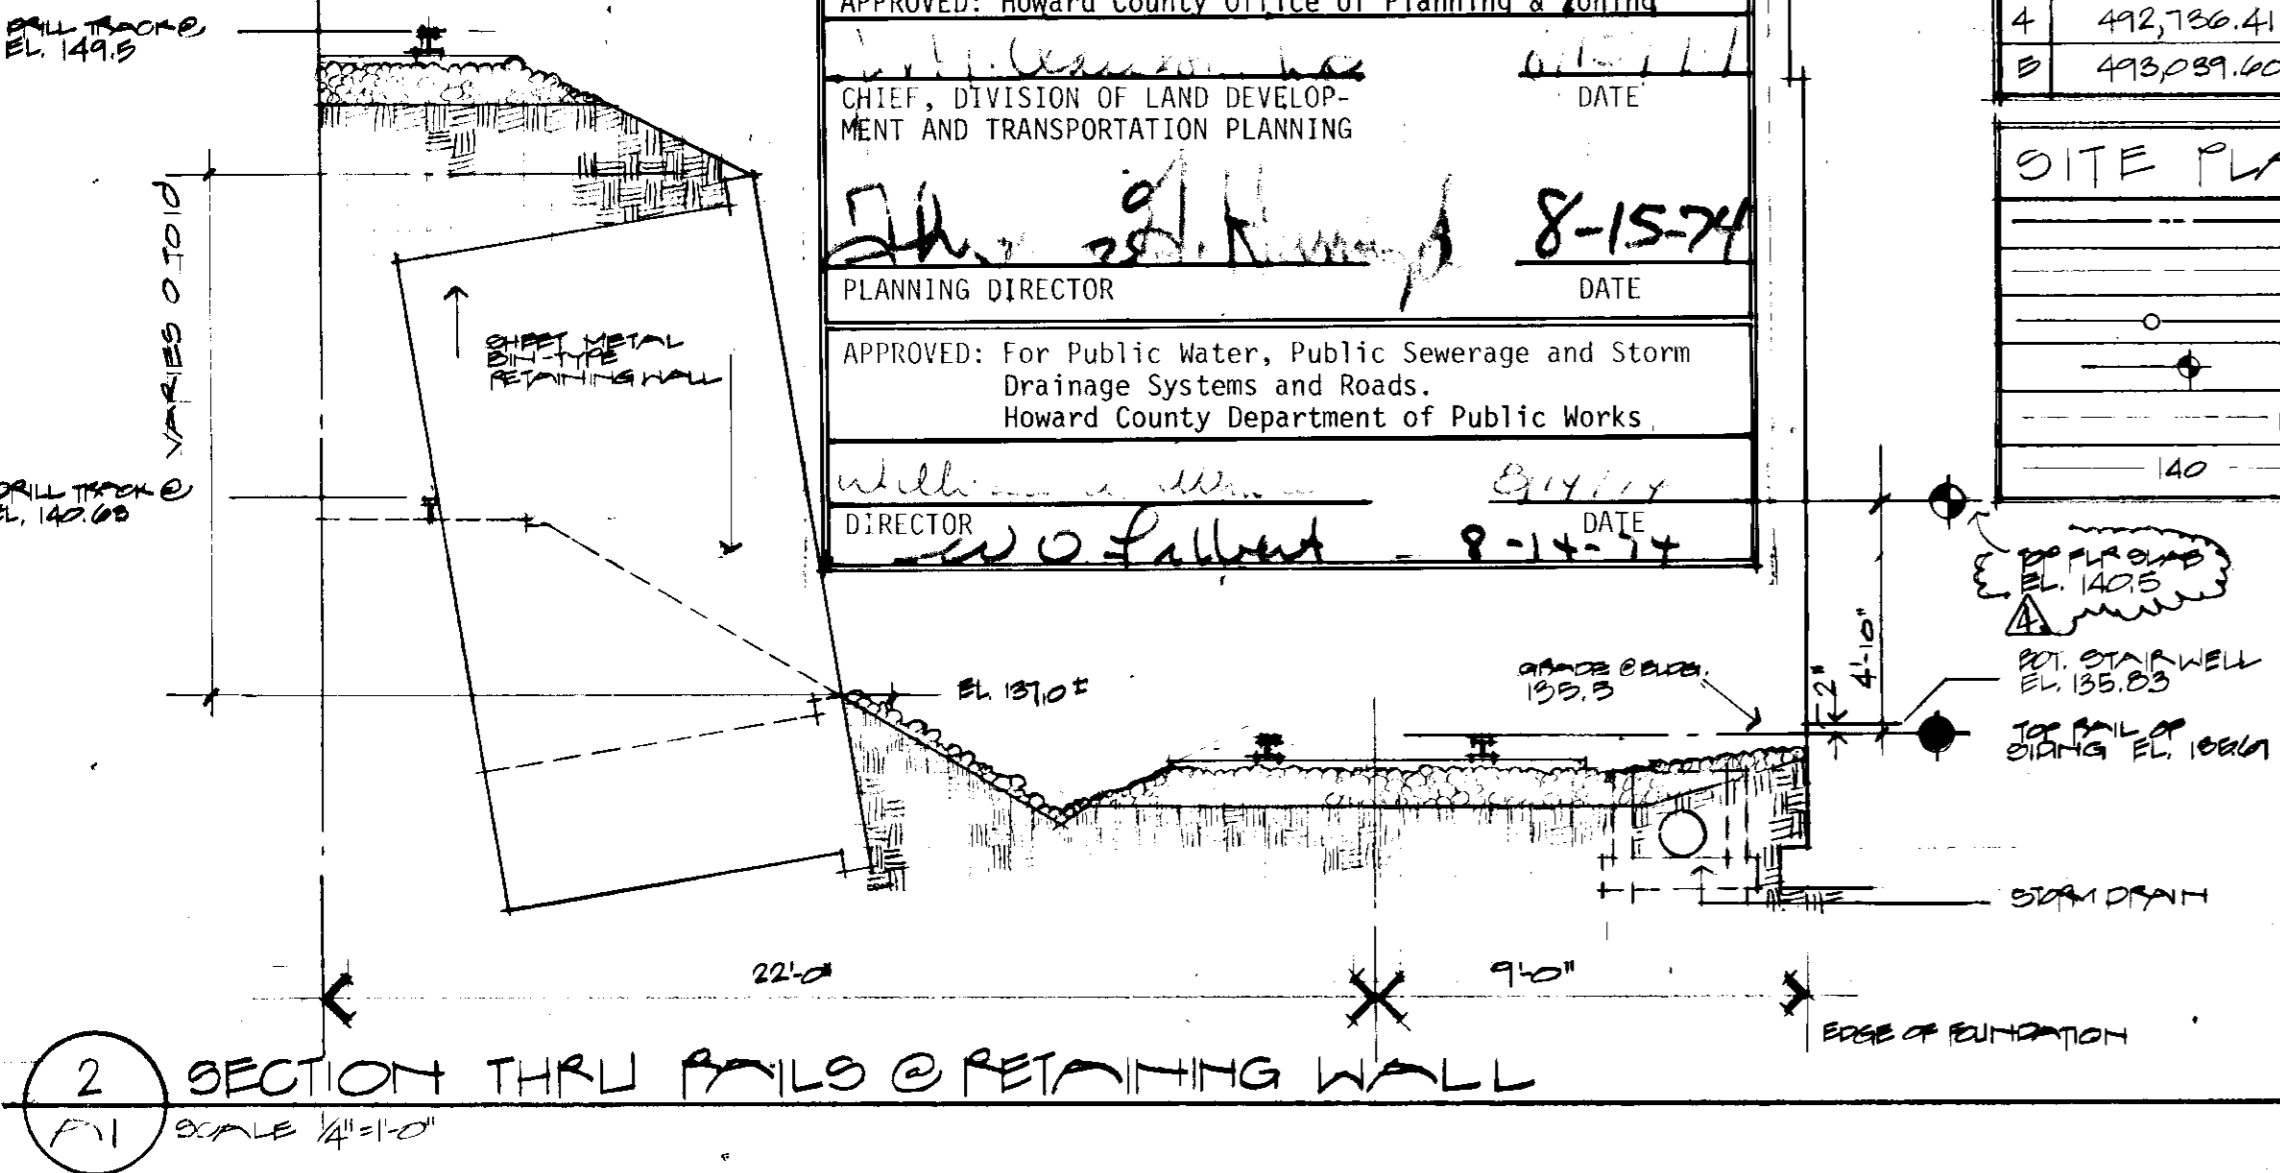 DRILL TRACK @
EL. 149.5
VARIES 0 TO 10
SHEET METAL
BIN-TYPE
RETAINING WALL
DRILL TRACK @
EL. 140.63
EL. 137.0±
APPROVED: Howard County Office of Planning & Zoning
CHIEF, DIVISION OF LAND DEVELOP-
MENT AND TRANSPORTATION PLANNING
DATE
8-15-74
PLANNING DIRECTOR
DATE
APPROVED: For Public Water, Public Sewerage and Storm
Drainage Systems and Roads.
Howard County Department of Public Works
DIRECTOR
DATE
8-14-74
4 492,736.41
5 493,039.60
SITE PLA
140
TOP FLR SLAB
EL. 140.5
4
4'-10"
2"
GRADE @ BLDG.
135.5
BOT. STAIRWELL
EL. 135.83
TOP RAIL OF
SIDING EL.
STORM DRAIN
22'-0"
9'-0"
EDGE OF FOUNDATION
2
A1
SECTION THRU RAILS @ RETAINING WALL
SCALE 1/4"=1'-0"